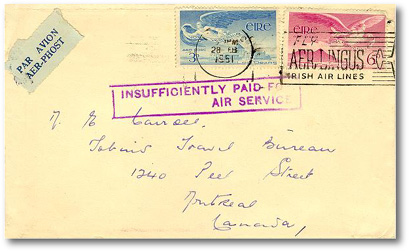 PAR AVION
AER-PHOST
3d
ÉIRE
28 FEB
1951
ÉIRE
FLY
AER LINGUS
6d
IRISH AIR LINES
INSUFFICIENTLY PAID FOR
AIR SERVICE
Travel Bureau
1240 Peel Street
Montreal
Canada,